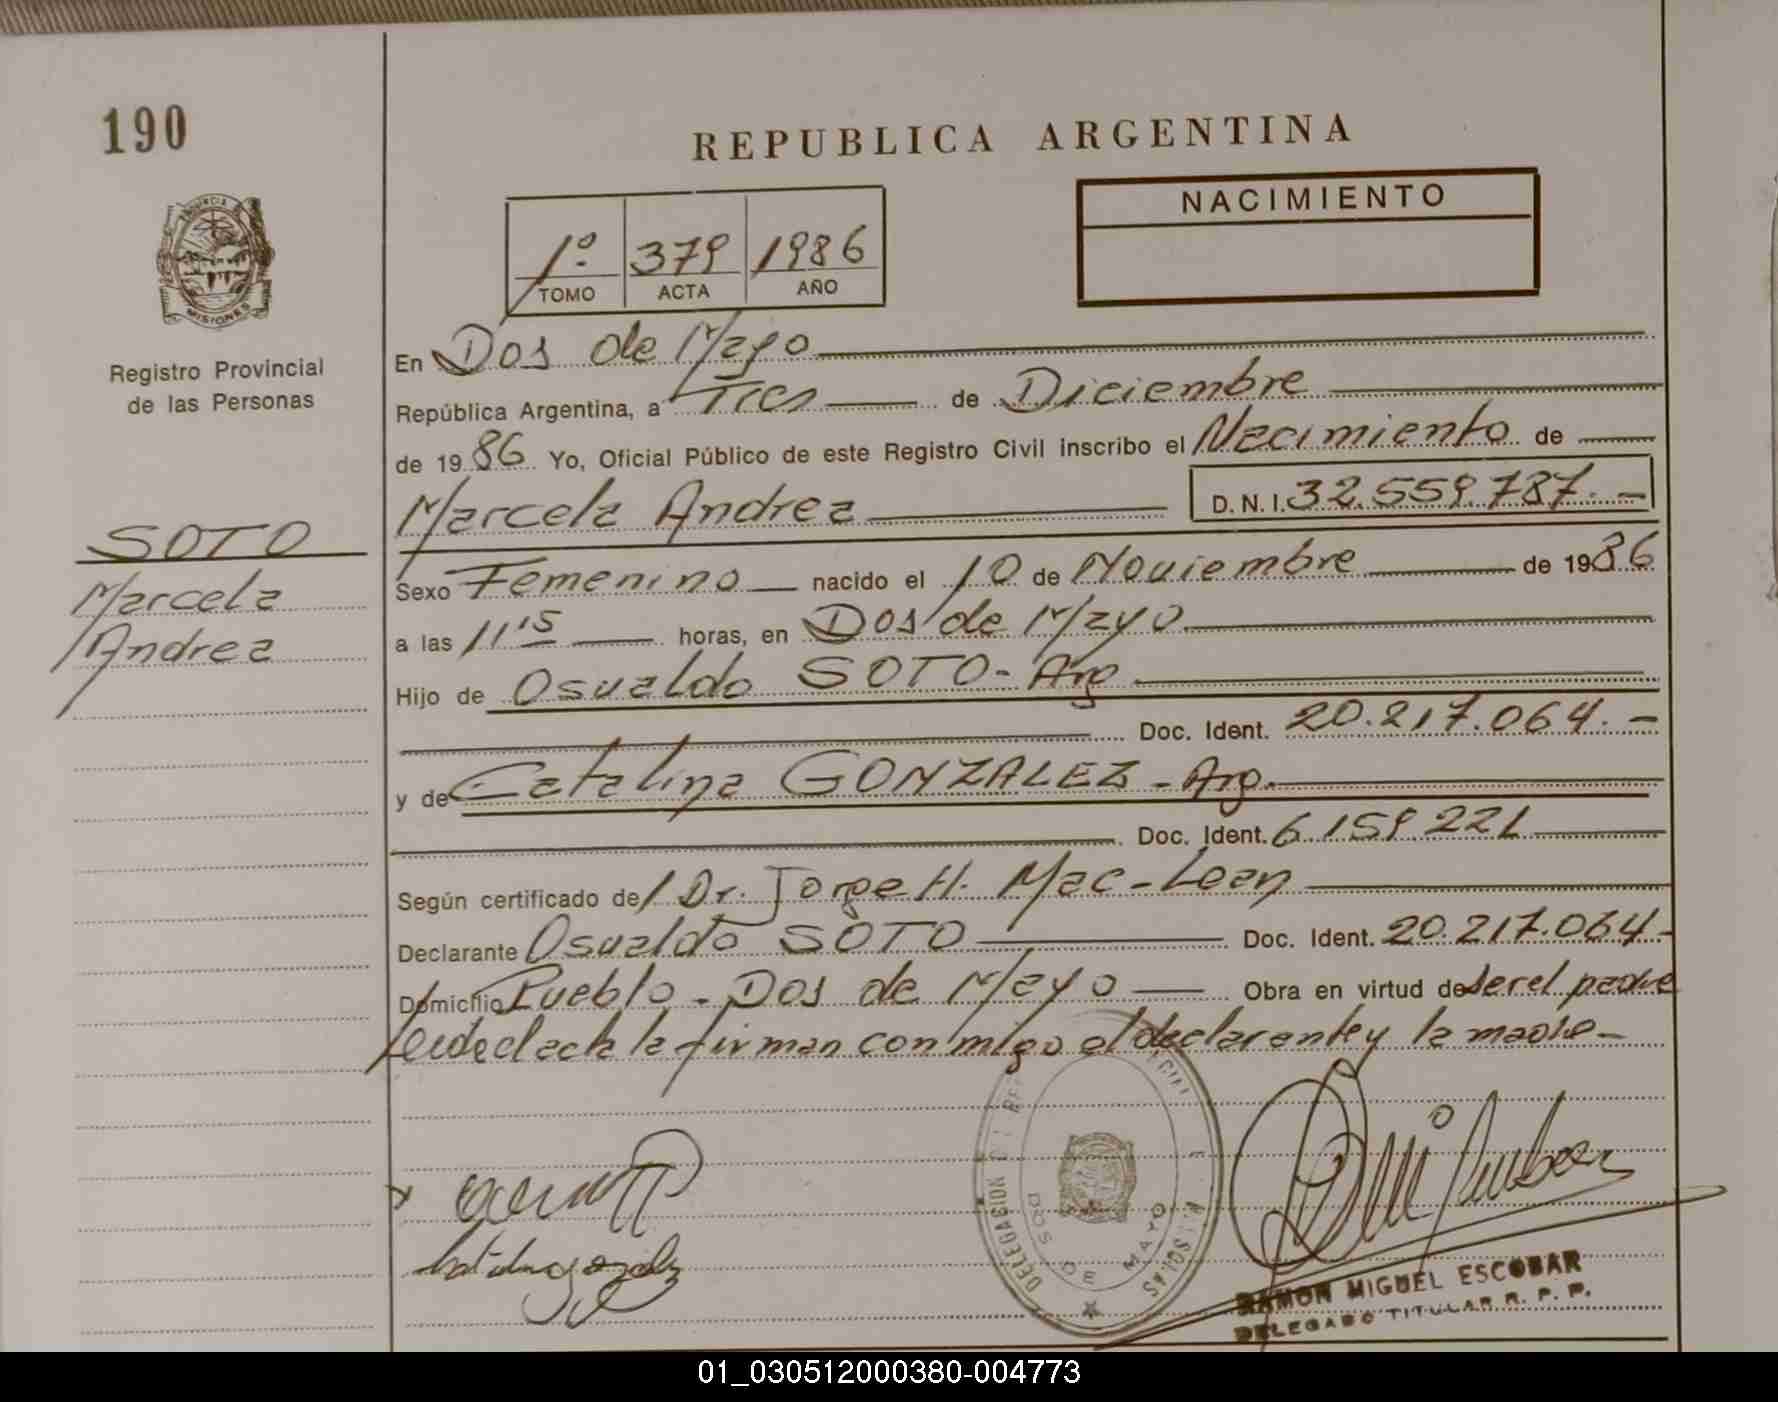 190
REPUBLICA ARGENTINA
PROVINCIA DE
MISIONES
Registro Provincial
de las Personas
1º 379 1986
TOMO ACTA AÑO
NACIMIENTO
En Dos de Mayo
República Argentina, a Tres de Diciembre
de 1986 Yo, Oficial Público de este Registro Civil inscribo el Nacimiento de
Marcela Andrea D.N.I. 32.559.787.-
SOTO
Marcela
Andrea
Sexo Femenino nacido el 10 de Noviembre de 1986
a las 11'15 horas, en Dos de Mayo
Hijo de Osvaldo SOTO- Arg
Doc. Ident. 20.217.064.-
y de Catalina GONZALEZ - Arg.
Doc. Ident. 6.159.221
Según certificado de Dr. Jorge H. Mac-Loan
Declarante Osvaldo SOTO Doc. Ident. 20.217.064-
Domicilio Pueblo - Dos de Mayo Obra en virtud de ser el padre
Leida el acta la firman conmigo el declarante y la madre-
DELEGACION
DOS DE MAYO
RAMON MIGUEL ESCOBAR
DELEGADO TITULAR R. P. P.
01_030512000380-004773